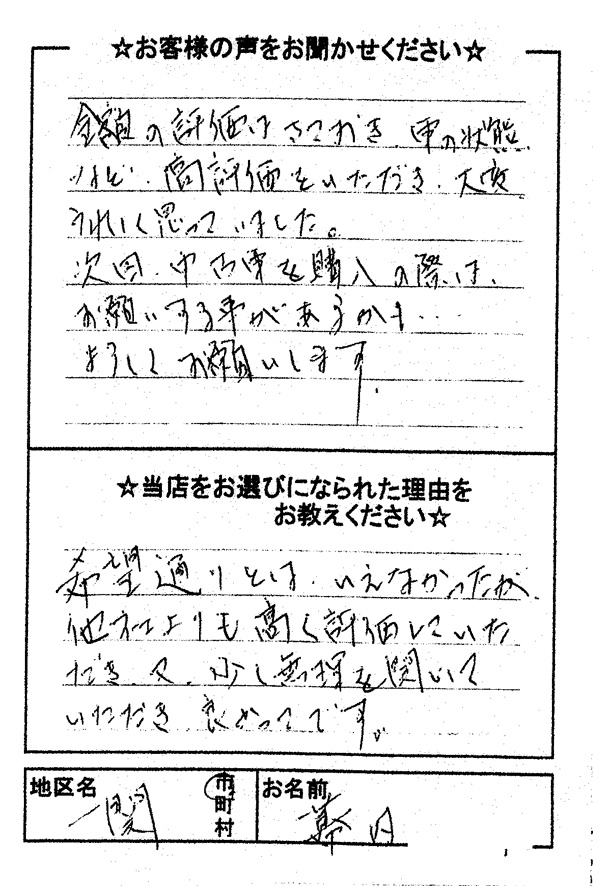 ☆お客様の声をお聞かせください☆
金額の評価はさておき、車の状態
など、高評価をいただき、大変
うれしく思っていました。
次回、中古車を購入の際は、
お願いする事があるかも…
よろしくお願いします。
☆当店をお選びになられた理由を
お教えください☆
希望通りとは、いえなかったが、
他社よりも高く評価していた
だき、又、少し無理を聞いて
いただき良かったです。
地区名
一関
市
町
村
お名前